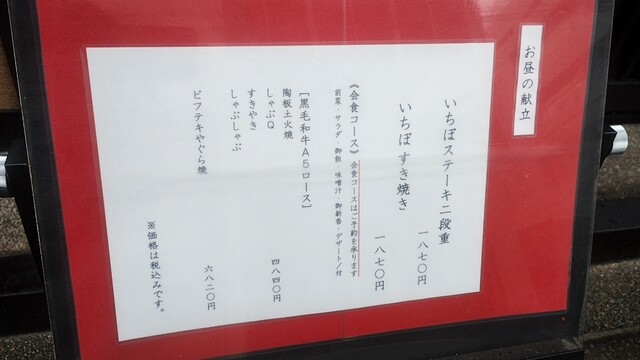 お昼の献立
いちぼステーキ二段重
一八七〇円
いちぼすき焼き
一八七〇円
《会食コース》会食コースはご予約を承ります
前菜・サラダ・御飯・味噌汁・御新香・デザート/付
［黒毛和牛A5ロース］
陶板土火焼
しゃぶQ
すきやき
しゃぶしゃぶ
四八四〇円
ビフテキやぐら焼
六八二〇円
※価格は税込みです。